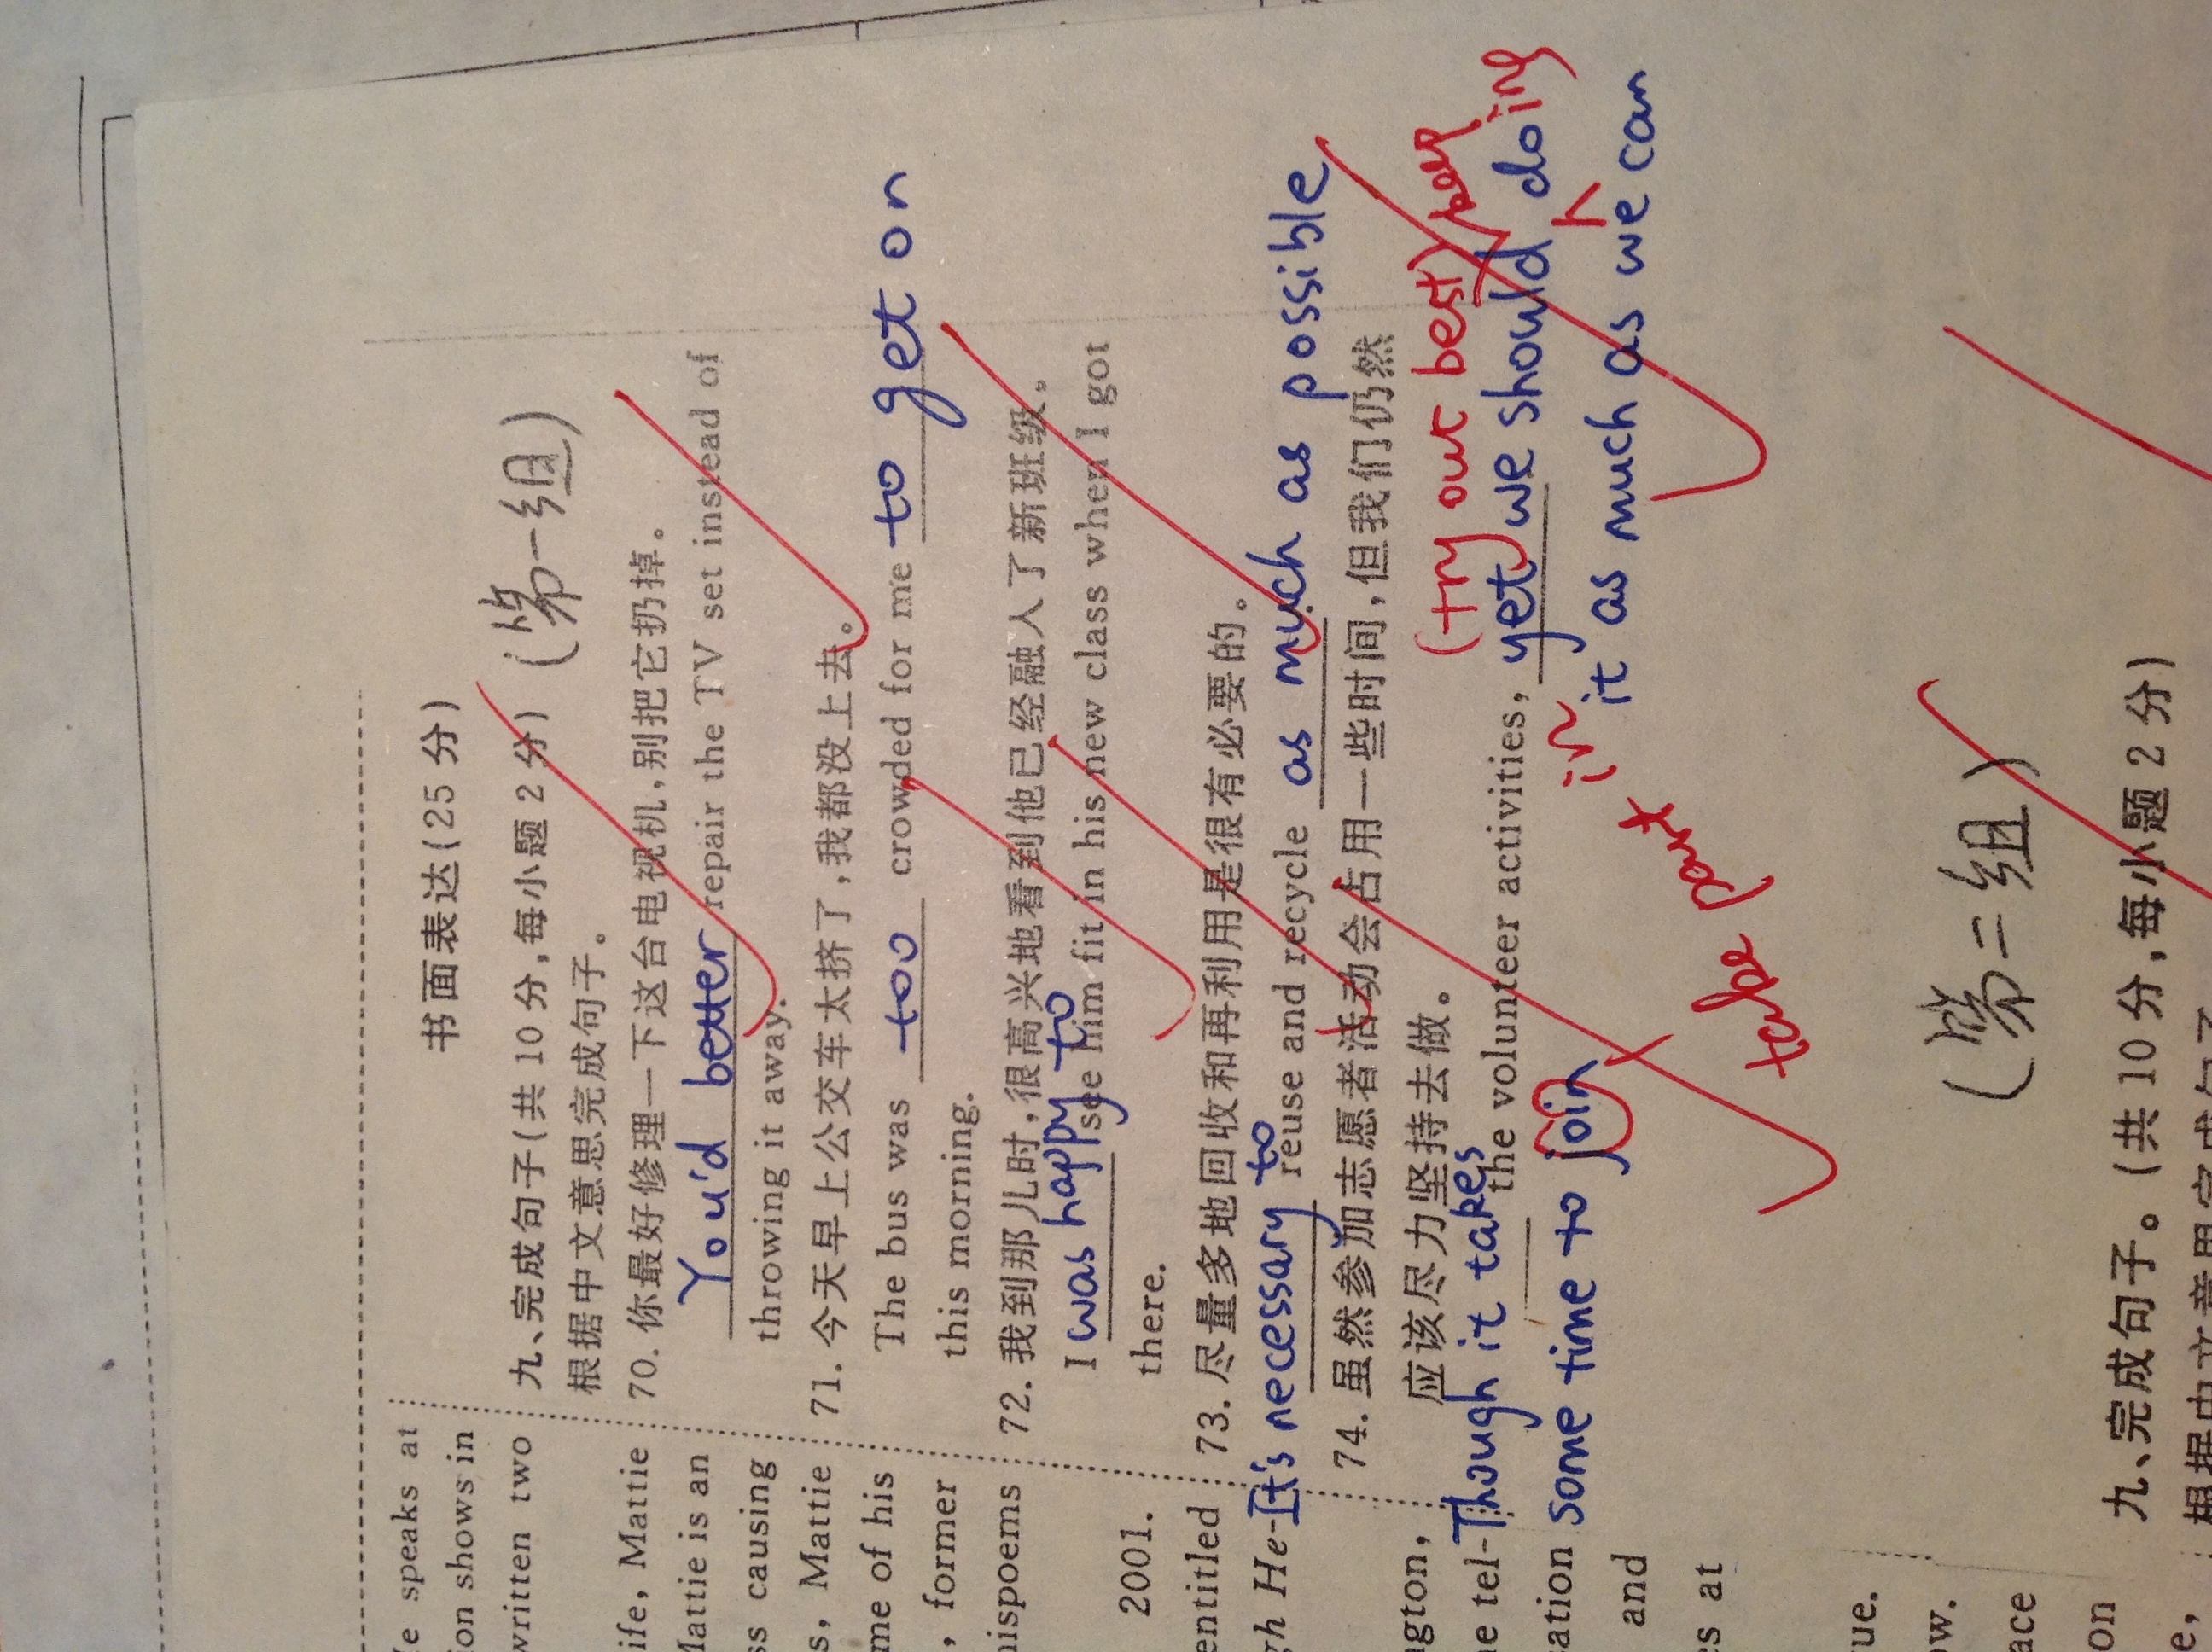 le speaks at
ion shows in
written two
ife, Mattie
Mattie is an
ss causing
s, Mattie
me of his
, former
hispoems
2001.
entitled
gh He-
ngton,
e tel-
sation
and
es at
rue.
ow.
ace
on
e,
书面表达(25 分)
九、完成句子(共 10 分,每小题 2 分) (第一组)
根据中文意思完成句子。
70. 你最好修理一下这台电视机,别把它扔掉。
You'd better repair the TV set instead of
throwing it away.
71. 今天早上公交车太挤了,我都没上去。
The bus was too crowded for me to get on
this morning.
72. 我到那儿时,很高兴地看到他已经融入了新班级。
I was happy to see him fit in his new class when I got
there.
73. 尽量多地回收和再利用是很有必要的。
It's necessary to reuse and recycle as much as possible.
74. 虽然参加志愿者活动会占用一些时间,但我们仍然
应该尽力坚持去做。
(try out best) keep
Though it takes the volunteer activities, yet we should doing
some time to join it as much as we can
take part in
(第二组)
九、完成句子。(共 10 分,每小题 2 分)
根据中文意思完成句子